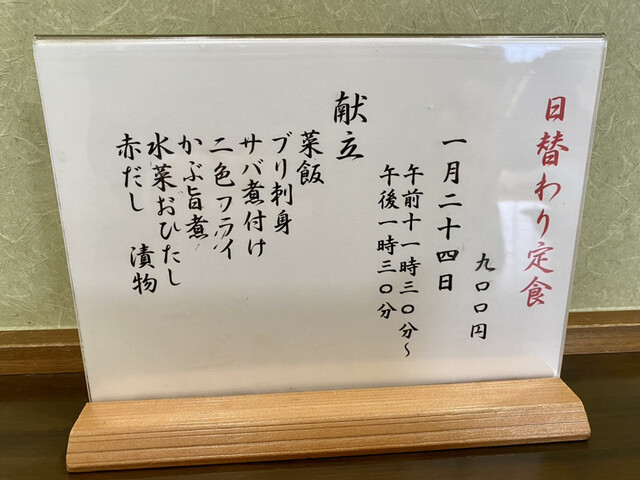 日替わり定食
九〇〇円
一月二十四日
午前十一時三〇分~
午後一時三〇分
献立
菜飯
ブリ刺身
サバ煮付け
二色フライ
かぶ旨煮
水菜おひたし
赤だし 漬物